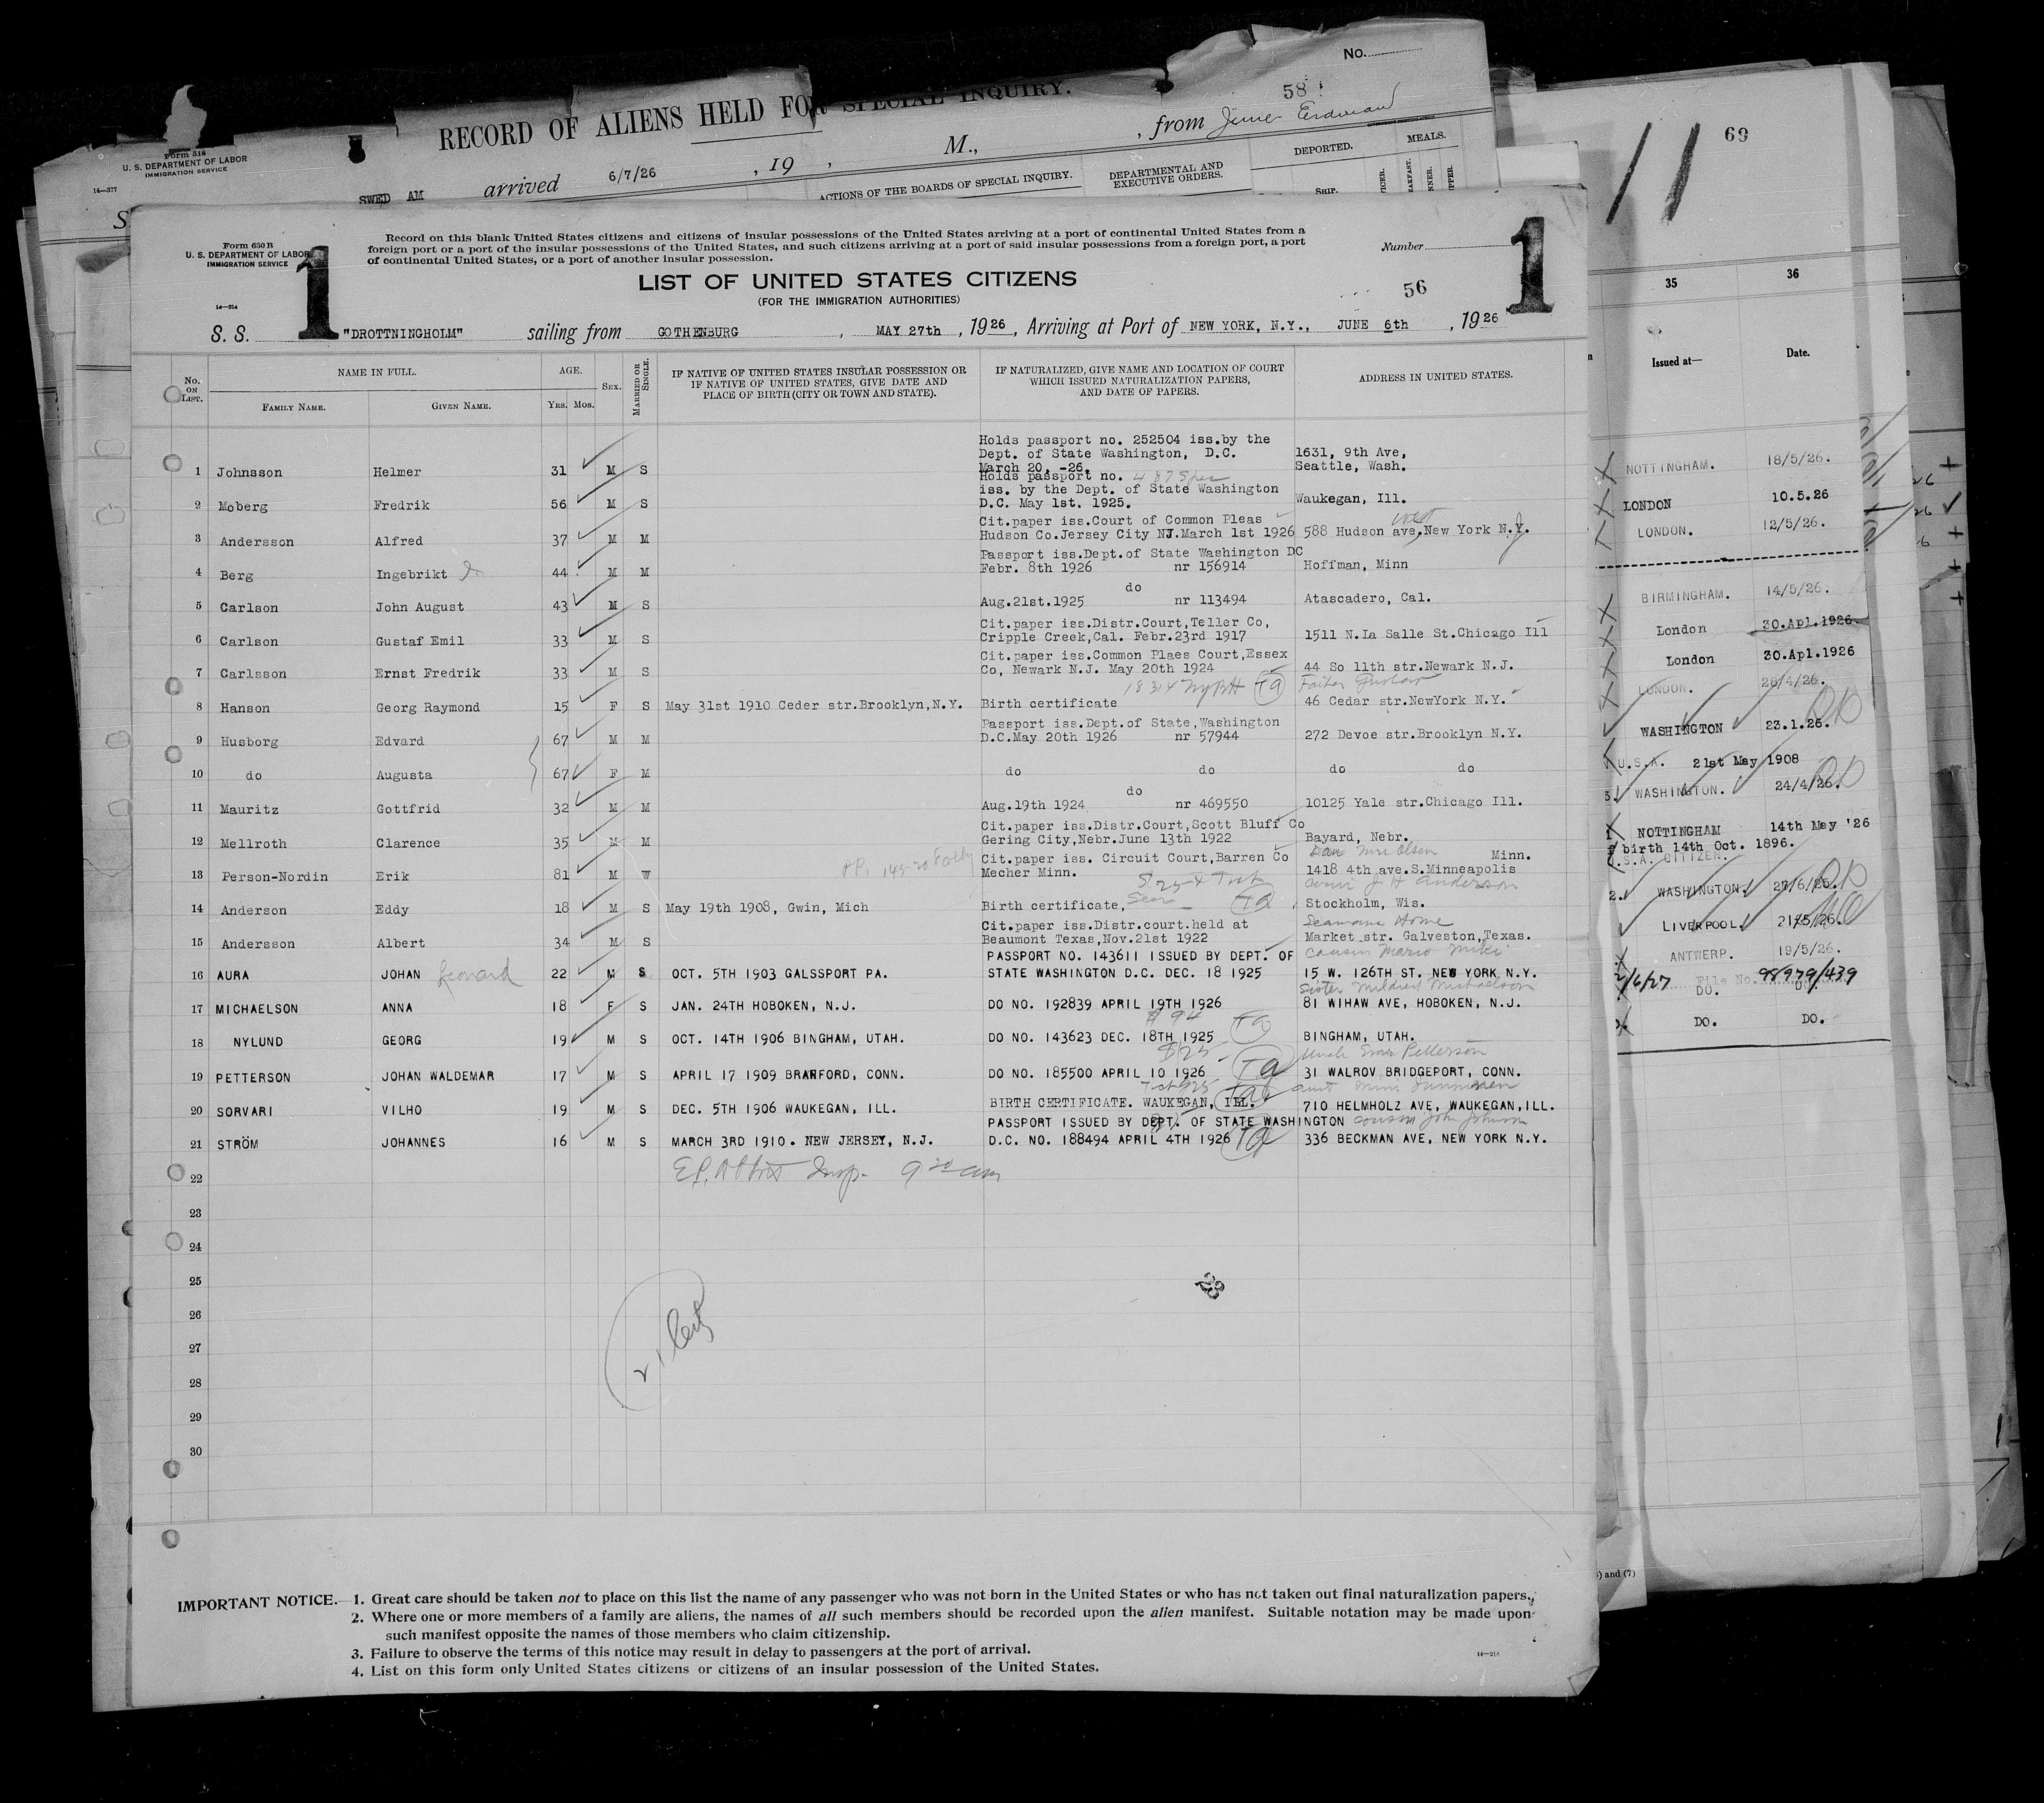 No.
58
RECORD OF ALIENS HELD FOR SPECIAL INQUIRY.
Form 518
U. S. DEPARTMENT OF LABOR
IMMIGRATION SERVICE
14—377
SWED AM arrived 6/7/26 , 19 , M., , from
ACTIONS OF THE BOARDS OF SPECIAL INQUIRY.
DEPARTMENTAL AND
EXECUTIVE ORDERS.
DEPORTED.
SHIP.
MEALS.
S
Form 650 B
U. S. DEPARTMENT OF LABOR
IMMIGRATION SERVICE
14—214
1
Record on this blank United States citizens and citizens of insular possessions of the United States arriving at a port of continental United States from a
foreign port or a port of the insular possessions of the United States, and such citizens arriving at a port of said insular possessions from a foreign port, a port
of continental United States, or a port of another insular possession.
Number
1
LIST OF UNITED STATES CITIZENS
(FOR THE IMMIGRATION AUTHORITIES)
56
S. S. "DROTTNINGHOLM" sailing from GOTHENBURG , MAY 27th , 1926 , Arriving at Port of NEW YORK, N.Y., JUNE 6th , 1926
No. ON LIST.
NAME IN FULL.
FAMILY NAME.
GIVEN NAME.
AGE.
YRS. MOS.
SEX.
MARRIED OR SINGLE.
IF NATIVE OF UNITED STATES INSULAR POSSESSION OR
IF NATIVE OF UNITED STATES, GIVE DATE AND
PLACE OF BIRTH (CITY OR TOWN AND STATE).
IF NATURALIZED, GIVE NAME AND LOCATION OF COURT
WHICH ISSUED NATURALIZATION PAPERS,
AND DATE OF PAPERS.
ADDRESS IN UNITED STATES.
Holds passport no. 252504 iss.by the
Dept. of State Washington, D.C. 1631, 9th Ave,
1 Johnsson Helmer 31 M S March 20, -26, Seattle, Wash.
Holds passport no.
iss. by the Dept. of State Washington
2 Moberg Fredrik 56 M S D.C. May 1st. 1925. Waukegan, Ill.
Cit.paper iss.Court of Common Pleas west
3 Andersson Alfred 37 M M Hudson Co.Jersey City NJ.March 1st 1926 588 Hudson ave,New York N.Y.
J
Passport iss.Dept.of State Washington DC
4 Berg Ingebrikt 44 M M Febr. 8th 1926 nr 156914 Hoffman, Minn
do
5 Carlson John August 43 M S Aug.21st.1925 nr 113494 Atascadero, Cal.
Cit.paper iss.Distr.Court,Teller Co,
6 Carlson Gustaf Emil 33 M S Cripple Creek,Cal. Febr.23rd 1917 1511 N.La Salle St.Chicago Ill
Cit.paper iss.Common Plaes Court,Essex
7 Carlsson Ernst Fredrik 33 M S Co, Newark N.J. May 20th 1924 44 So 11th str.Newark N.J.
Father Gustav
8 Hanson Georg Raymond 15 F S May 31st 1910 Ceder str.Brooklyn,N.Y. Birth certificate 46 Cedar str.NewYork N.Y.
Passport iss.Dept.of State,Washington
9 Husborg Edvard 67 M M D.C.May 20th 1926 nr 57944 272 Devoe str.Brooklyn N.Y.
10 do Augusta 67 F M do do do do
do
11 Mauritz Gottfrid 32 M M Aug.19th 1924 nr 469550 10125 Yale str.Chicago Ill.
Cit.paper iss.Distr.Court,Scott Bluff Co
12 Mellroth Clarence 35 M M Gering City,Nebr.June 13th 1922 Bayard, Nebr.
Cit.paper iss. Circuit Court,Barren Co Minn.
13 Person-Nordin Erik 81 M W Mecher Minn. 1418 4th ave.S.Minneapolis
14 Anderson Eddy 18 M S May 19th 1908, Gwin, Mich Birth certificate, Stockholm, Wis.
Cit.paper iss.Distr.court.held at Seamans Home
15 Andersson Albert 34 M S Beaumont Texas,Nov.21st 1922 Market str. Galveston,Texas.
PASSPORT NO. 143611 ISSUED BY DEPT. OF
16 AURA JOHAN Leonard 22 M S OCT. 5TH 1903 GALSSPORT PA. STATE WASHINGTON D.C. DEC. 18 1925 15 W. 126TH ST. NEW YORK N.Y.
Sister Mildred Michaelson
17 MICHAELSON ANNA 18 F S JAN. 24TH HOBOKEN, N.J. DO NO. 192839 APRIL 19TH 1926 81 WIHAW AVE, HOBOKEN, N.J.
$94
18 NYLUND GEORG 19 M S OCT. 14TH 1906 BINGHAM, UTAH. DO NO. 143623 DEC. 18TH 1925 BINGHAM, UTAH.
$25
19 PETTERSON JOHAN WALDEMAR 17 M S APRIL 17 1909 BRANFORD, CONN. DO NO. 185500 APRIL 10 1926 31 WALROV BRIDGEPORT, CONN.
20 SORVARI VILHO 19 M S DEC. 5TH 1906 WAUKEGAN, ILL. BIRTH CERTIFICATE. WAUKEGAN, ILL. 710 HELMHOLZ AVE, WAUKEGAN,ILL.
PASSPORT ISSUED BY DEPT. OF STATE WASHINGTON cousin John Johnson
21 STRÖM JOHANNES 16 M S MARCH 3RD 1910. NEW JERSEY, N.J. D.C. NO. 188494 APRIL 4TH 1926 336 BECKMAN AVE, NEW YORK N.Y.
22
23
24
25
26
27
28
29
30
IMPORTANT NOTICE.—1. Great care should be taken not to place on this list the name of any passenger who was not born in the United States or who has not taken out final naturalization papers.
2. Where one or more members of a family are aliens, the names of all such members should be recorded upon the alien manifest. Suitable notation may be made upon
such manifest opposite the names of those members who claim citizenship.
3. Failure to observe the terms of this notice may result in delay to passengers at the port of arrival.
4. List on this form only United States citizens or citizens of an insular possession of the United States.
11
69
35 36
Issued at— Date.
NOTTINGHAM. 18/5/26.
LONDON 10.5.26
LONDON. 12/5/26.
BIRMINGHAM. 14/5/26.
London 30.Apl.1926
London 30.Apl.1926
LONDON. 28/4/26.
WASHINGTON 23.1.26.
U.S.A. 21st May 1908
WASHINGTON. 24/4/26.
NOTTINGHAM 14th May '26
birth 14th Oct. 1896.
U.S.A. CITIZEN.
WASHINGTON. 27/6/25.
LIVERPOOL. 21/5/26.
ANTWERP. 19/5/26.
2/6/27 File No. 98979/439
DO. DO.
DO. DO.
) and (7)